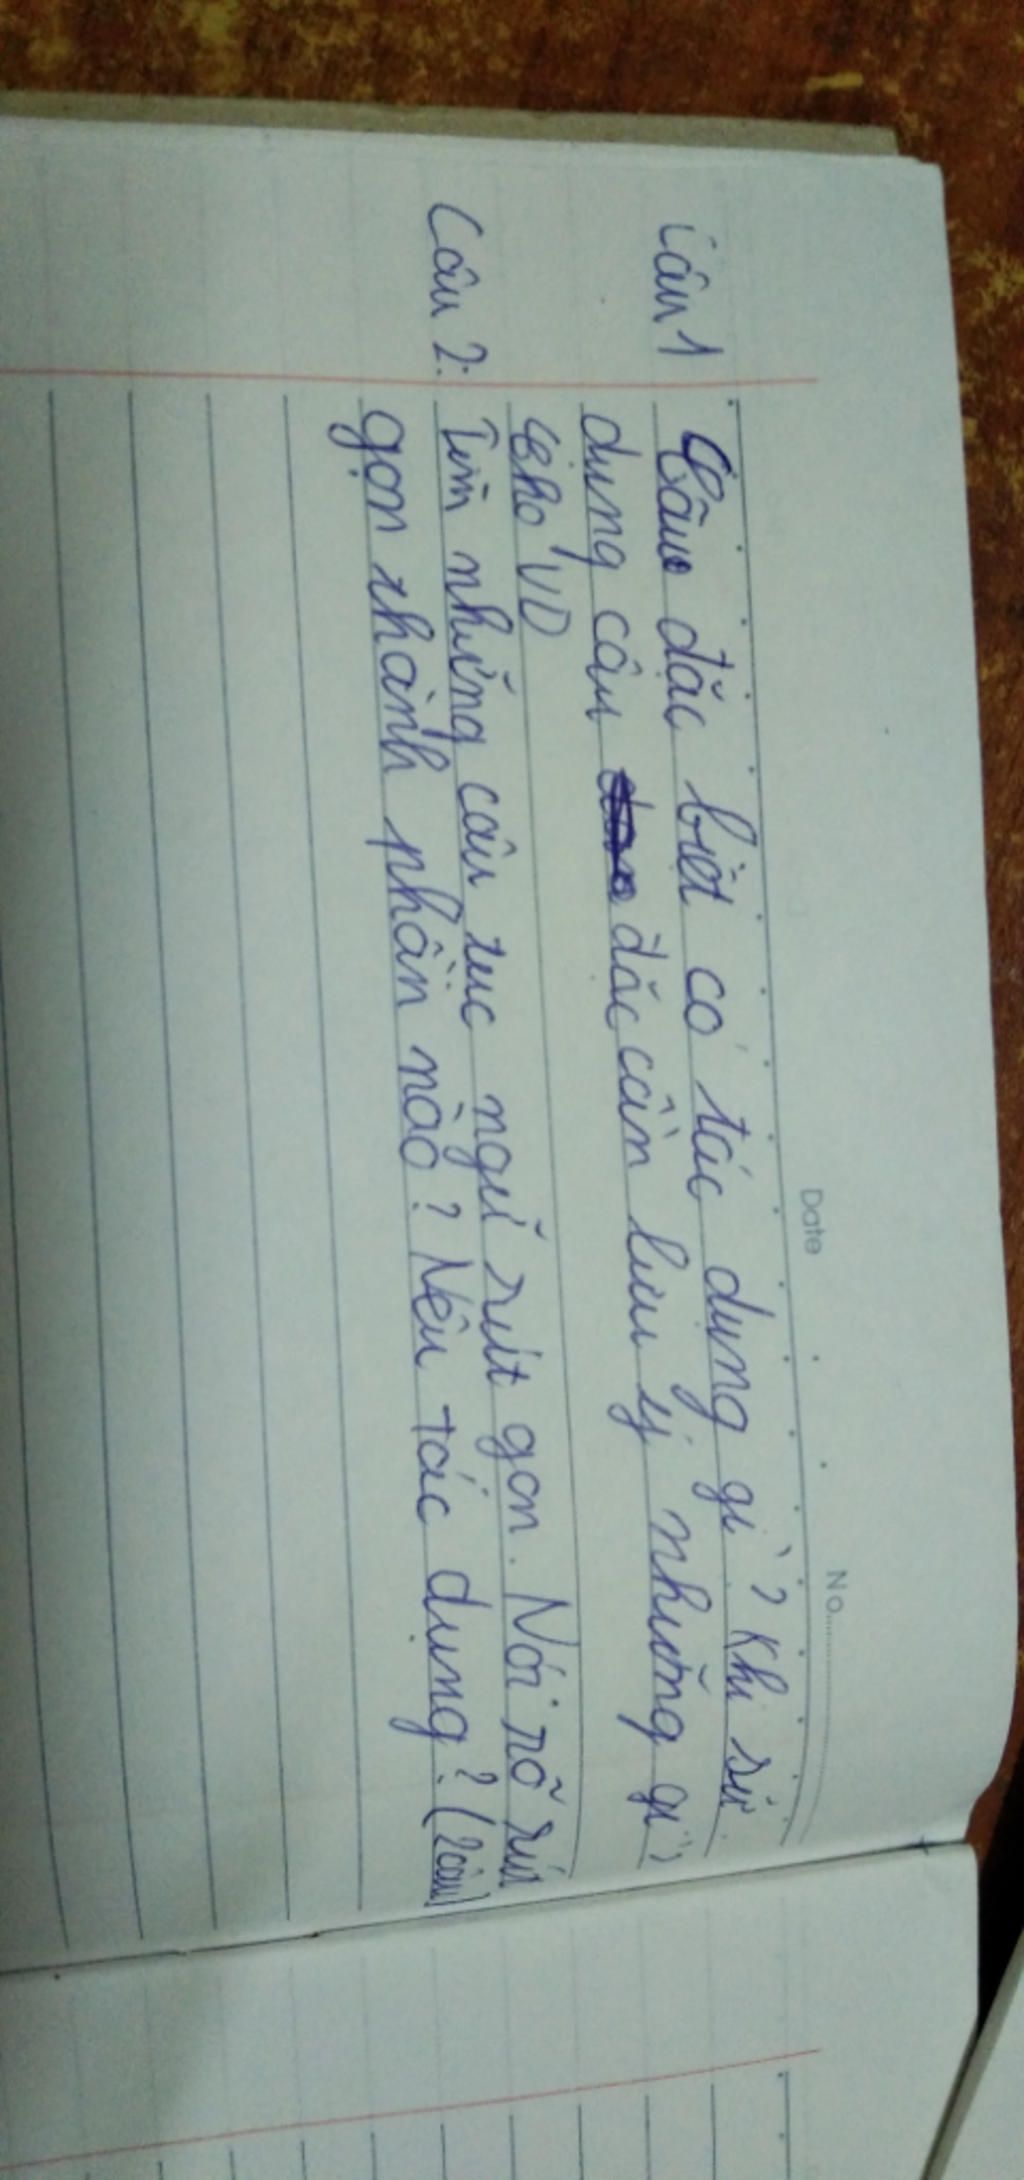 Date
No.
Câu 1 Câu đặc biệt có tác dụng gì? Khi sử
dụng câu đặc cần lưu ý những gì?
Cho VD
Câu 2: Tìm những câu tục ngữ rút gọn. Nói rõ rút
gọn thành phần nào? Nêu tác dụng? (2 câu)